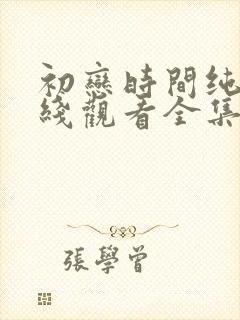 初戀時間纯
綫觀看全集
張學曾